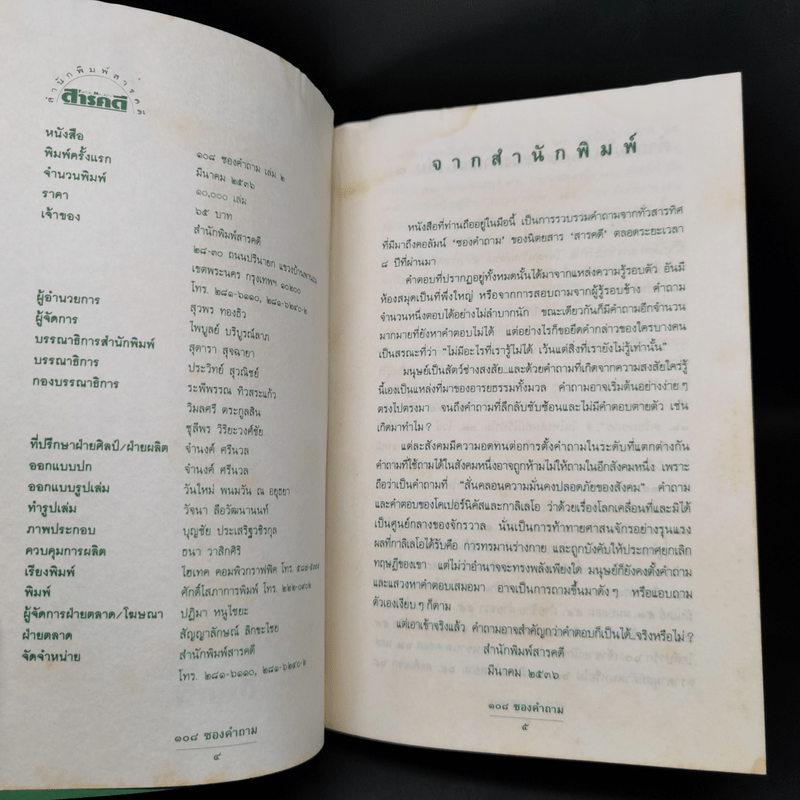 สำนักพิมพ์สารคดี
สารคดี
หนังสือ ๑๐๘ ซองคำถาม เล่ม ๒
พิมพ์ครั้งแรก มีนาคม ๒๕๓๖
จำนวนพิมพ์ ๑๐,๐๐๐ เล่ม
ราคา ๖๕ บาท
เจ้าของ สำนักพิมพ์สารคดี
๒๘-๓๐ ถนนปรินายก แขวงบ้านพานถม
เขตพระนคร กรุงเทพฯ ๑๐๒๐๐
โทร. ๒๘๑-๖๑๑๐, ๒๘๑-๖๒๔๐-๒
ผู้อำนวยการ สุวพร ทองธิว
ผู้จัดการ ไพบูลย์ บริบูรณ์ลาภ
บรรณาธิการสำนักพิมพ์ สุดารา สุจฉายา
บรรณาธิการ ประวิทย์ สุวณิชย์
กองบรรณาธิการ ระพีพรรณ ทิวสระแก้ว
วิมลศรี ตระกูลสิน
ชุลีพร วิริยะวงศ์ชัย
ที่ปรึกษาฝ่ายศิลป์/ฝ่ายผลิต จำนงค์ ศรีนวล
ออกแบบปก จำนงค์ ศรีนวล
ออกแบบรูปเล่ม วันใหม่ พนมวัน ณ อยุธยา
ทำรูปเล่ม วัจนา ลือวัฒนานนท์
ภาพประกอบ บุญชัย ประเสริฐวชิรกุล
ควบคุมการผลิต ธนา วาสิกศิริ
เรียงพิมพ์ ไฮเทค คอมพิวกราฟฟิค โทร.
พิมพ์ ศักดิ์โสภาการพิมพ์ โทร.
ผู้จัดการฝ่ายตลาด/โฆษณา ปฏิมา หนูไชยะ
ฝ่ายตลาด สัญญาลักษณ์ ลิกขะไชย
จัดจำหน่าย สำนักพิมพ์สารคดี
โทร. ๒๘๑-๖๑๑๐, ๒๘๑-๖๒๔๐-๒
๑๐๘ ซองคำถาม
๔
จากสำนักพิมพ์
หนังสือที่ท่านถืออยู่ในมือนี้ เป็นการรวบรวมคำถามจากทั่วสารทิศ
ที่มีมาถึงคอลัมน์ ‘ซองคำถาม’ ของนิตยสาร ‘สารคดี’ ตลอดระยะเวลา
๘ ปีที่ผ่านมา
คำตอบที่ปรากฏอยู่ทั้งหมดนั้นได้มาจากแหล่งความรู้รอบตัว อันมี
ห้องสมุดเป็นที่พึ่งใหญ่ หรือจากการสอบถามจากผู้รู้รอบข้าง คำถาม
จำนวนหนึ่งตอบได้อย่างไม่ลำบากนัก ขณะเดียวกันก็มีคำถามอีกจำนวน
มากมายที่ยังหาคำตอบไม่ได้ แต่อย่างไรก็ขอยึดคำกล่าวของใครบางคน
เป็นสรณะที่ว่า “ไม่มีอะไรที่เรารู้ไม่ได้ เว้นแต่สิ่งที่เรายังไม่รู้เท่านั้น”
มนุษย์เป็นสัตว์ช่างสงสัย...และด้วยคำถามที่เกิดจากความสงสัยใคร่รู้
นี้เองเป็นแหล่งที่มาของอารยธรรมทั้งมวล คำถามอาจเริ่มต้นอย่างง่ายๆ
ตรงไปตรงมา จนถึงคำถามที่ลึกลับซับซ้อนและไม่มีคำตอบตายตัว เช่น
เกิดมาทำไม?
แต่ละสังคมมีความอดทนต่อการตั้งคำถามในระดับที่แตกต่างกัน
คำถามที่ใช้ถามได้ในสังคมหนึ่งอาจถูกห้ามไม่ให้ถามในอีกสังคมหนึ่ง เพราะ
ถือว่าเป็นคำถามที่ “สั่นคลอนความมั่นคงปลอดภัยของสังคม” คำถาม
และคำตอบของโคเปอร์นิคัสและกาลิเลโอ ว่าด้วยเรื่องโลกเคลื่อนที่และมิได้
เป็นศูนย์กลางของจักรวาล นั่นเป็นการท้าทายศาสนจักรอย่างรุนแรง
ผลที่กาลิเลโอได้รับคือ การทรมานร่างกาย และถูกบังคับให้ประกาศยกเลิก
ทฤษฎีของเขา แต่ไม่ว่าอำนาจจะทรงพลังเพียงใด มนุษย์ก็ยังคงตั้งคำถาม
และแสวงหาคำตอบเสมอมา อาจเป็นการถามขึ้นมาดังๆ หรือแอบถาม
ตัวเองเงียบๆ ก็ตาม
แต่เอาเข้าจริงแล้ว คำถามอาจสำคัญกว่าคำตอบก็เป็นได้..จริงหรือไม่?
สำนักพิมพ์สารคดี
มีนาคม ๒๕๓๖
๑๐๘ ซองคำถาม
๕